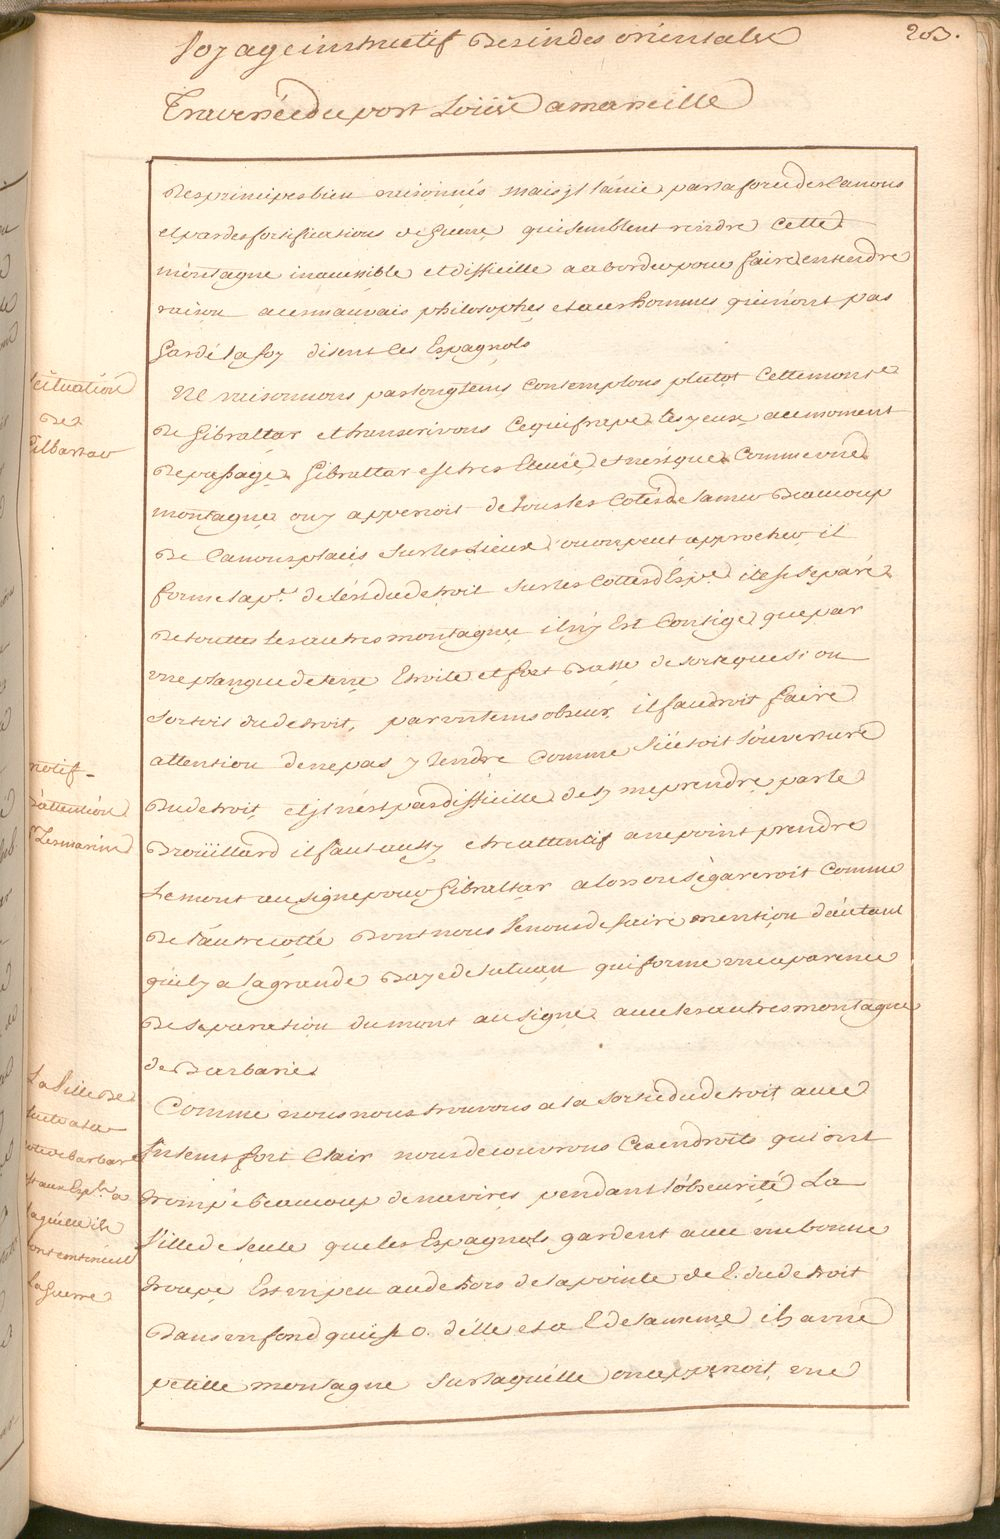 Voyage instructif Des indes orientales
203.
Traversée du port Loüis a marseille
Des principes bien raisonnés mais jl lánie par la force des Canons
et par des fortifications de Guerre qui semblent rendre Cette
montagne inacessible et dificille a aborder pour faire entendre
raison a ces mauvais philosophes et a ces hommes qui n'ont pas
Gardé la foy disent les Espagnols
scituation
De
Gilbartar
Ne raisonnons pas longtems Contemplons plutot Cette mont.e
De Gibraltar et transcrivons Ce qui frape les yeux au moment
De passage Gibraltar est tres Elevée et presque Comme une
montagne on y apperçoit de tous les Cotés de la mer Beaucoup
De Canons placés sur les Lieux ou on peut approcher il
forme la p.e de l'est du detroit sur les Cottes d'Esp.e il est separé
De touttes les autres montagnes il n'y Est Contigé que par
une plangue de terre Etroite et fort Basse de sorte que si on
sortoit du detroit, par un tems obscur, il faudroit faire
attention de ne pas y tendre Comme si c'etoit l'ouverture
notif-
D'attention
p.r Les marins
Du detroit, et jl n'est pas dificille de s'y meprendre par le
Broüillard il faut aussy etre attentif a ne point prendre
Le mont au signe pour Gibraltar alors on s'égareroit Comme
De l'autre cotté Dont nous Venons de faire mention d'autant
qu'il y a la grande Baye de tutuan qui forme une aparence
De separation du mont au signe avec les autres montagne
de Barbarie
La Ville De
seute a la
cote de Barbarie
est aux Esp.ls a
laquelle ils
font continuell
La Guerre
Comme nous nous trouvons a la sortie du detroit avec
Un tems fort Clair nous decouvrons Ces endroits qui ont
trompé Beaucoup de navires pendant l'obscurité La
Ville de seute que les Espagnols gardent avec une bonne
troupe Est un peu au dehors de la pointe de E. du detroit
Dans un fond qui est O. d'elle et a E de la meme il y a une
petitte montagne sur laquelle on apperçoit une